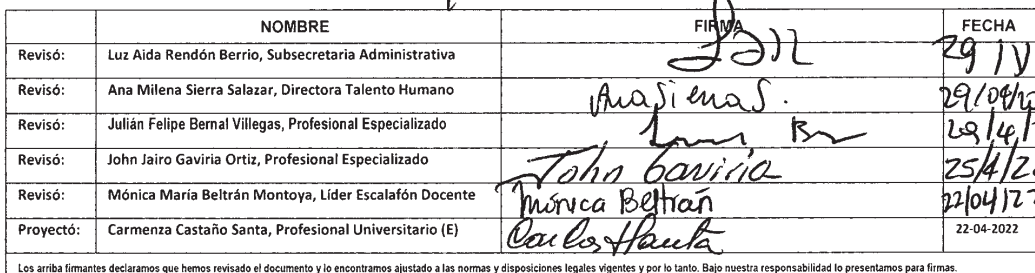 NOMBRE FIRMA FECHA
Revisó: Luz Aida Rendón Berrio, Subsecretaria Administrativa 29 IV
Revisó: Ana Milena Sierra Salazar, Directora Talento Humano Ana Sierra S. 29/04/
Revisó: Julián Felipe Bernal Villegas, Profesional Especializado
Revisó: John Jairo Gaviria Ortiz, Profesional Especializado John Gaviria 25/4/2
Revisó: Mónica María Beltrán Montoya, Líder Escalafón Docente Mónica Beltrán 22/04/2
Proyectó: Carmenza Castaño Santa, Profesional Universitario (E) 22-04-2022
Los arriba firmantes declaramos que hemos revisado el documento y lo encontramos ajustado a las normas y disposiciones legales vigentes y por lo tanto. Bajo nuestra responsabilidad lo presentamos para firmas.